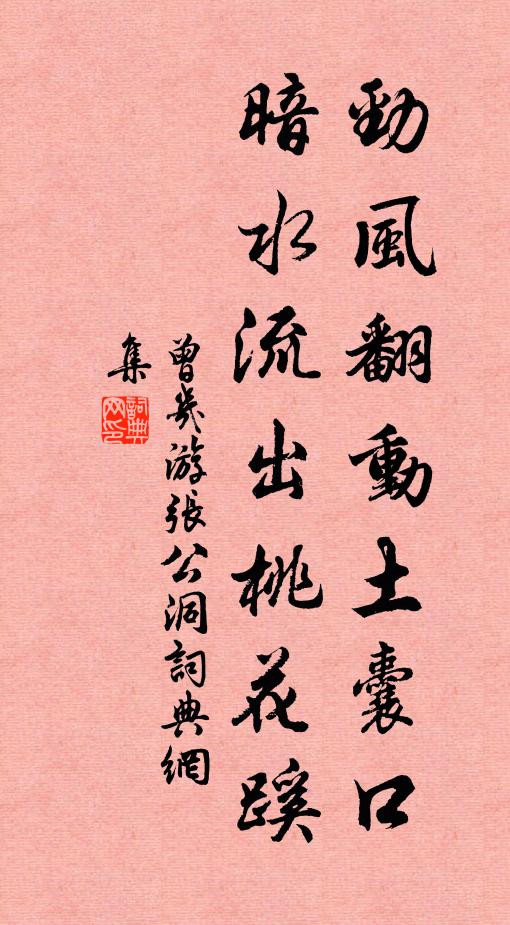 勁風翻動土囊口
暗水流出桃花蹊
曾幾游張公洞詞典網
集
詞典網印